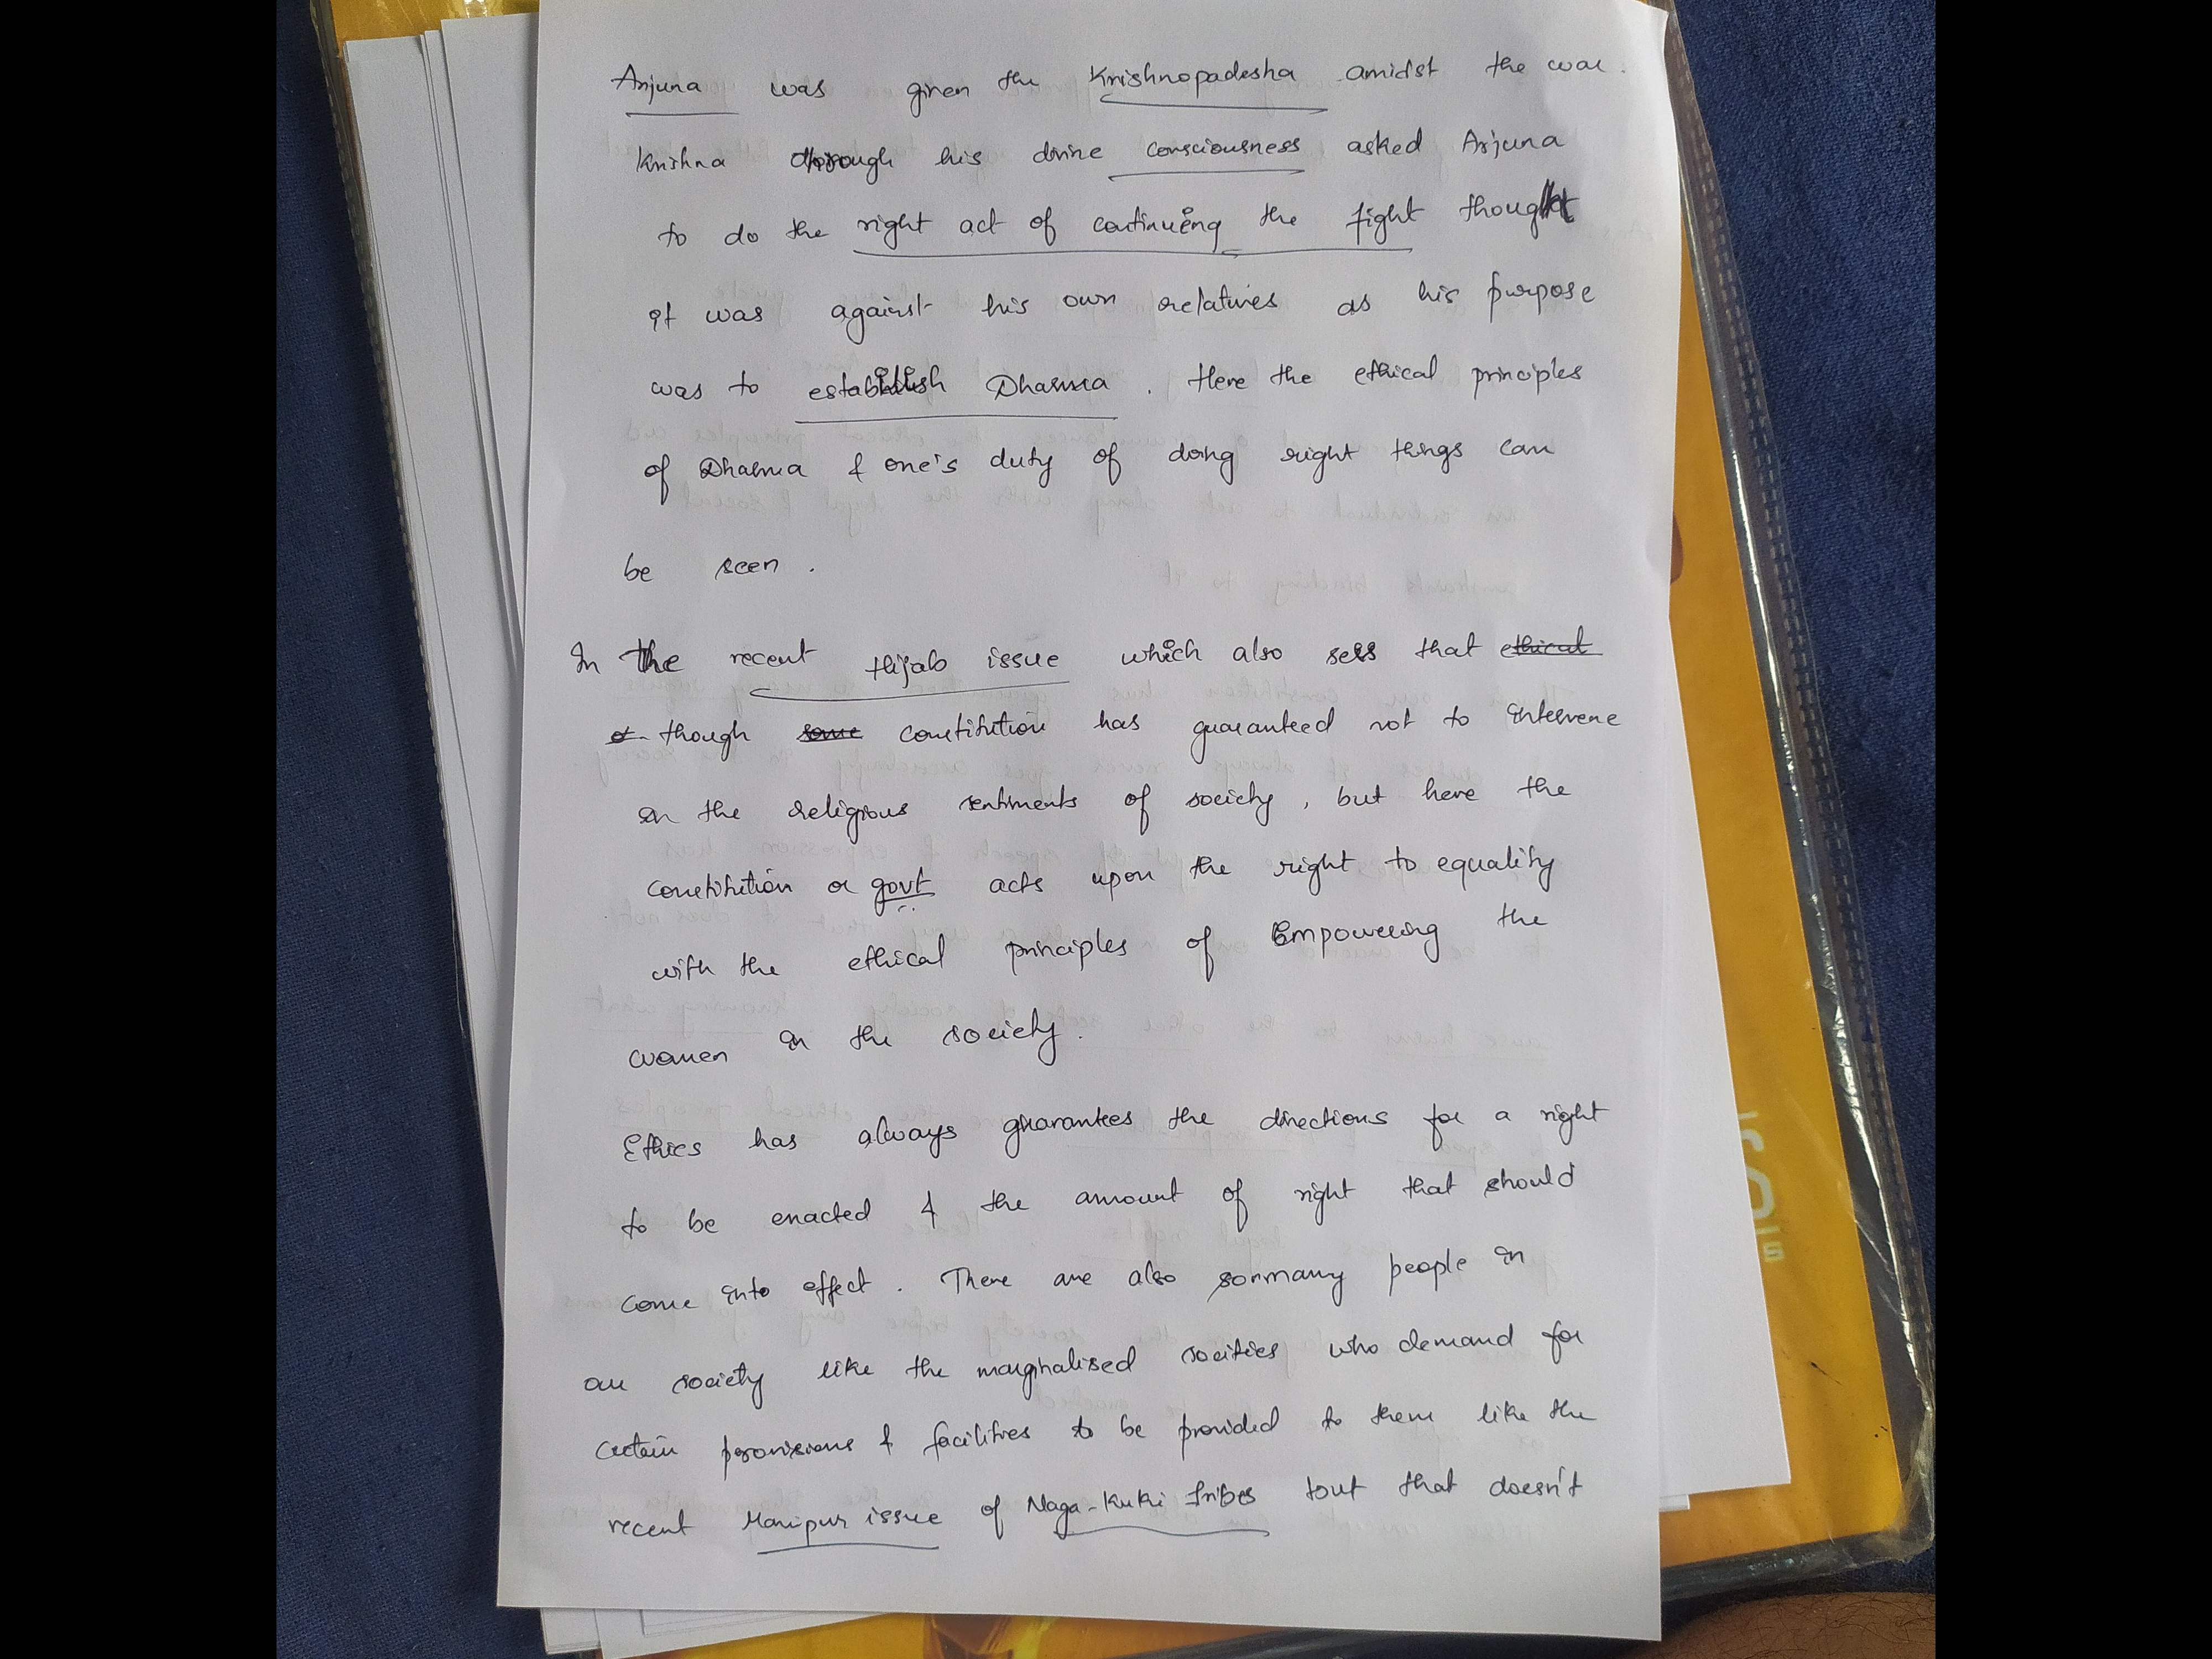 Arjuna was given the Krishnopadesha amidst the war.
Krishna through his divine consciousness asked Arjuna
to do the right act of continuing the fight though
it was against his own relatives as his purpose
was to establish Dharma. Here the ethical principles
of Dharma & one's duty of doing right things can
be seen.
In the recent Hijab issue which also sess that ethical
though some constitution has guaranteed not to intervene
in the religious sentiments of society, but here the
constitution or govt acts upon the right to equality
with the ethical principles of Empowering the
women in the society.
Ethics has always guarantees the directions for a right
to be enacted & the amount of right that should
come into effect. There are also somany people in
our society like the marginalised socities who demand for
certain provisions & facilities to be provided to them like the
recent Manipur issue of Naga-Kuki tribes but that doesn't